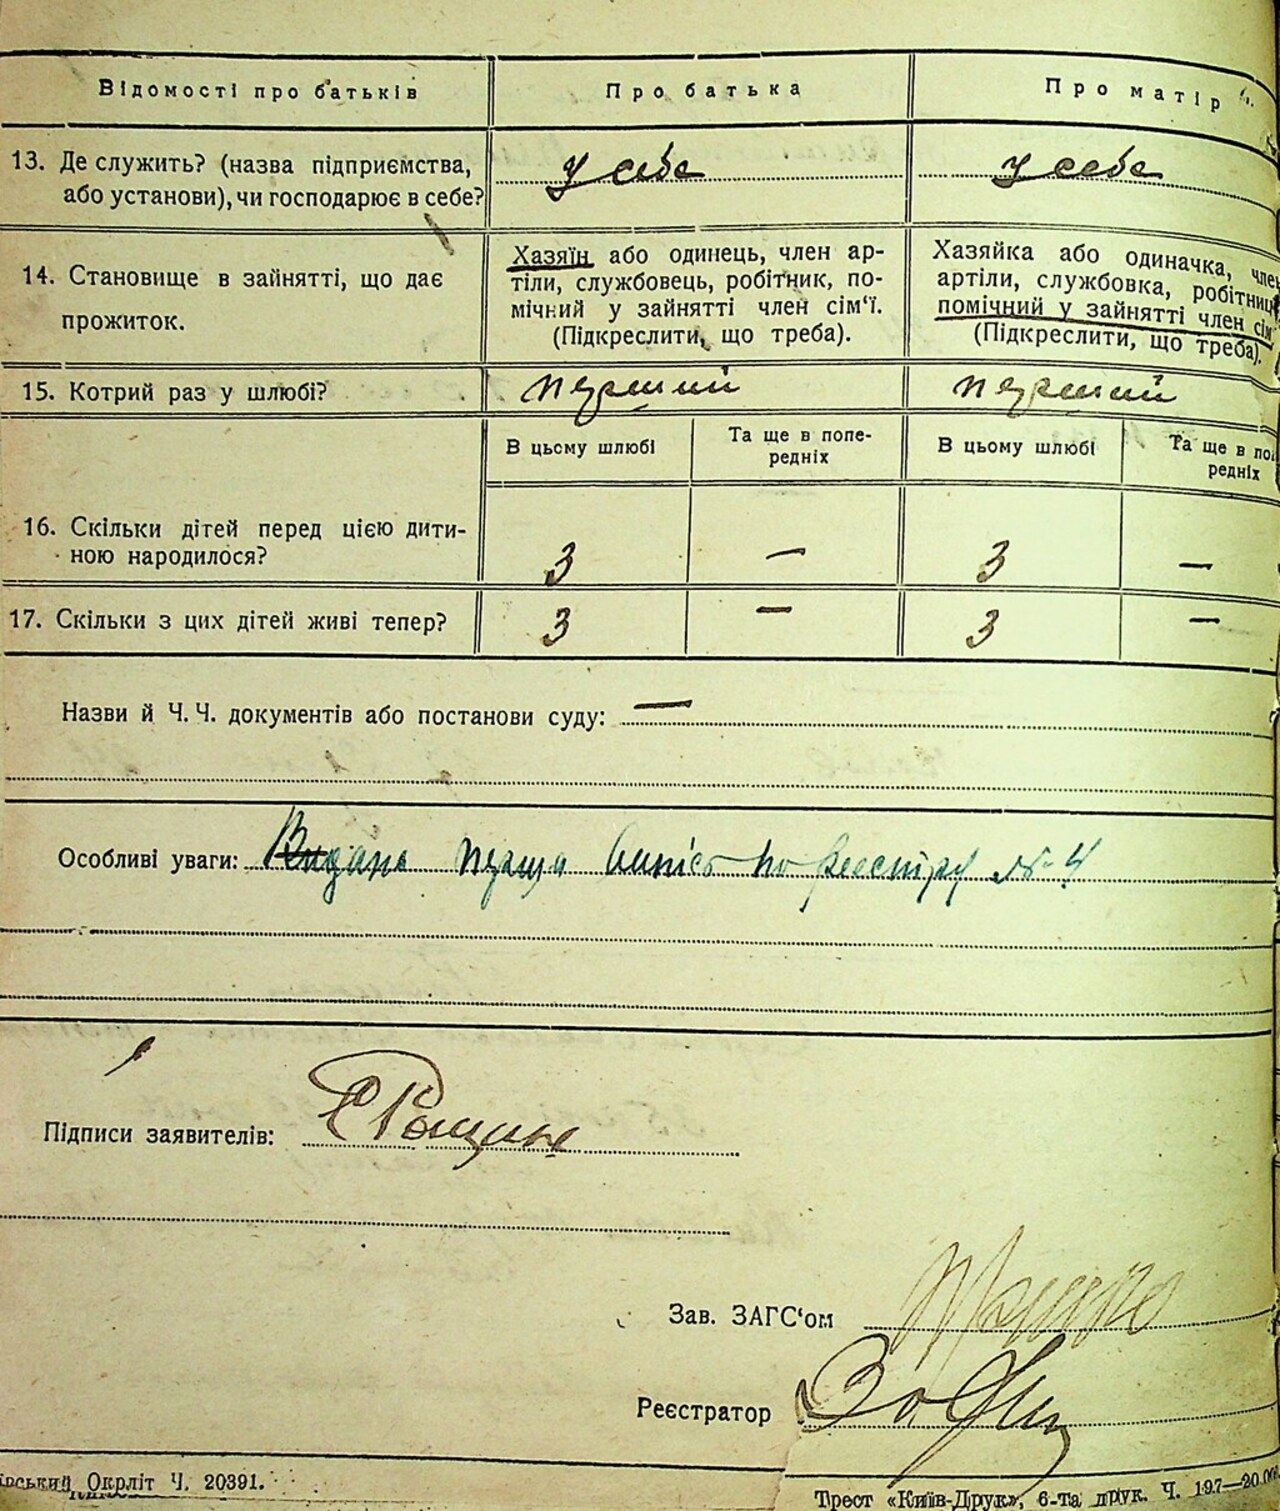 Відомості про батьків
Про батька
Про матір
13. Де служить? (назва підприємства,
або установи), чи господарює в себе?
у себе
у себе
14. Становище в зайнятті, що дає
прожиток.
Хазяїн або одинець, член ар-
тіли, службовець, робітник, по-
мічний у зайнятті член сім'ї.
(Підкреслити, що треба).
Хазяйка або одиначка, член
артіли, службовка, робітниця
помічний у зайнятті член сім'
(Підкреслити, що треба).
15. Котрий раз у шлюбі?
перший
перший
В цьому шлюбі
Та ще в попе-
редніх
В цьому шлюбі
Та ще в по
редніх
16. Скільки дітей перед цією дити-
ною народилося?
3 — 3 —
17. Скільки з цих дітей живі тепер?
3 — 3 —
Назви й Ч. Ч. документів або постанови суду: —
Особливі уваги: Видана перша по реєстру № 4
Підписи заявителів:
Зав. ЗАГС'ом
Реєстратор
ївський Окрліт Ч. 20391.
Трест «Київ-Друк», 6-та друк. Ч. 197—20.000